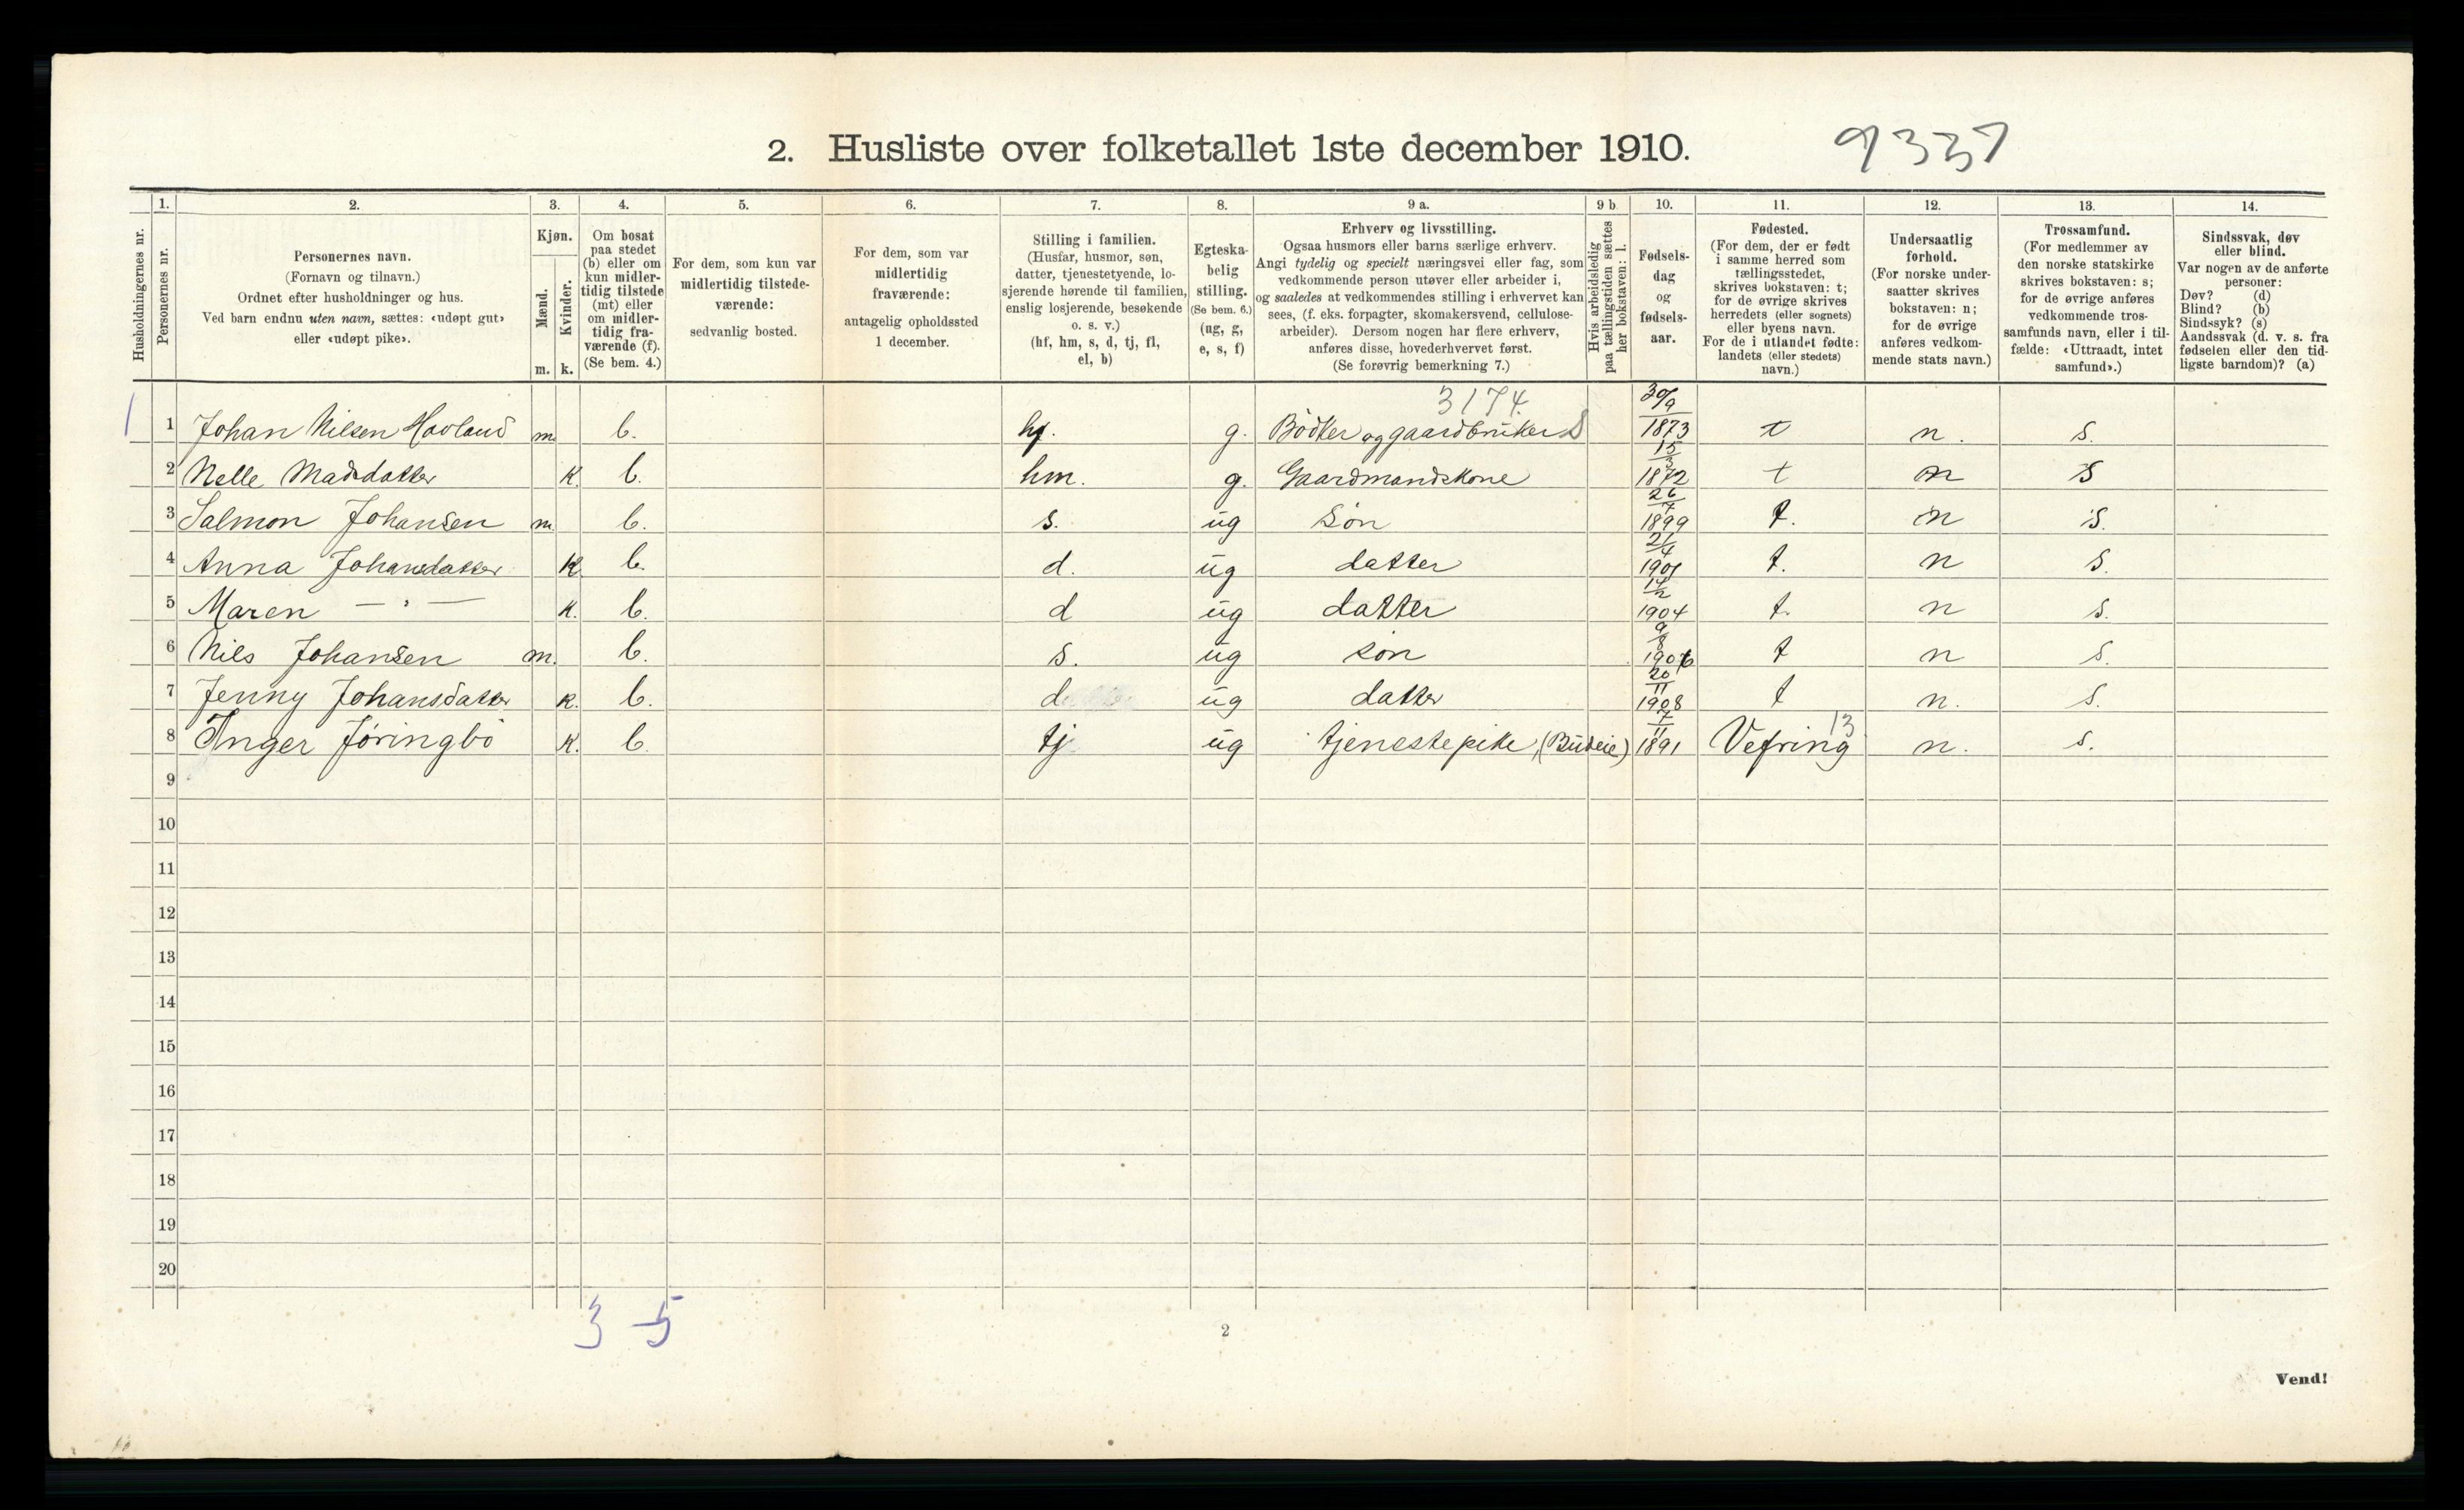 2. Husliste over folketallet 1ste december 1910.
9337
Husholdningernes nr.
1.
Personernes nr.
2.
Personernes navn.
(Fornavn og tilnavn.)
Ordnet efter husholdninger og hus.
Ved barn endnu uten navn, sættes: «udøpt gut»
eller «udøpt pike».
3.
Kjøn.
Mænd.
Kvinder.
m. k.
4.
Om bosat
paa stedet
(b) eller om
kun midler-
tidig tilstede
(mt) eller
om midler-
tidig fra-
værende (f).
(Se bem. 4.)
5.
For dem, som kun var
midlertidig tilstede-
værende:
sedvanlig bosted.
6.
For dem, som var
midlertidig
fraværende:
antagelig opholdssted
1 december.
7.
Stilling i familien.
(Husfar, husmor, søn,
datter, tjenestetyende, lo-
sjerende hørende til familien,
enslig losjerende, besøkende
o. s. v.)
(hf, hm, s, d, tj, fl,
el, b)
8.
Egteska-
belig
stilling.
(Se bem. 6.)
(ug, g,
e, s, f)
9 a.
Erhverv og livsstilling.
Ogsaa husmors eller barns særlige erhverv.
Angi tydelig og specielt næringsvei eller fag, som
vedkommende person utøver eller arbeider i,
og saaledes at vedkommendes stilling i erhvervet kan
sees, (f. eks. forpagter, skomakersvend, cellulose-
arbeider). Dersom nogen har flere erhverv,
anføres disse, hovederhvervet først.
(Se forøvrig bemerkning 7.)
9 b
Hvis arbeidsledig
paa tællingstiden sættes
her bokstaven: l.
10.
Fødsels-
dag
og
fødsels-
aar.
11.
Fødested.
(For dem, der er født
i samme herred som
tællingsstedet,
skrives bokstaven: t;
for de øvrige skrives
herredets (eller sognets)
eller byens navn.
For de i utlandet fødte:
landets (eller stedets)
navn.)
12.
Undersaatlig
forhold.
(For norske under-
saatter skrives
bokstaven: n;
for de øvrige
anføres vedkom-
mende stats navn.)
13.
Trossamfund.
(For medlemmer av
den norske statskirke
skrives bokstaven: s;
for de øvrige anføres
vedkommende tros-
samfunds navn, eller i til-
fælde: «Uttraadt, intet
samfund».)
14.
Sindssvak, døv
eller blind.
Var nogen av de anførte
personer:
Døv? (d)
Blind? (b)
Sindssyk? (s)
Aandssvak (d. v. s. fra
fødselen eller den tid-
ligste barndom)? (a)
3174
1 1 Johan Nilsen Hovland m. b. hf. g. Bödker og gaardbruker S 30/9 1873 t n. s.
2 Nelle Madsdatter k. b. hm. g. Gaardmandskone 15/3 1872 t n s
3 Salmon Johansen m. b. s. ug Sön 26/7 1899 t. n s.
4 Anna Johansdatter k b. d. ug datter 21/4 1901 t. n s.
5 Maren — " — k. b. d ug datter 14/2 1904 t. n s.
6 Nils Johansen m. b. s. ug sön 9/8 1906 t n s.
7 Jenny Johansdatter k. b. d ug datter 20/11 1908 t n. s.
8 Inger Jöringbö k. b. tj ug tjenestepike, (Budeie) 7/11 1891 Vefring 13 n. s.
9
10
11
12
13
14
15
16
17
18
19
20
3 5
2
Vend!